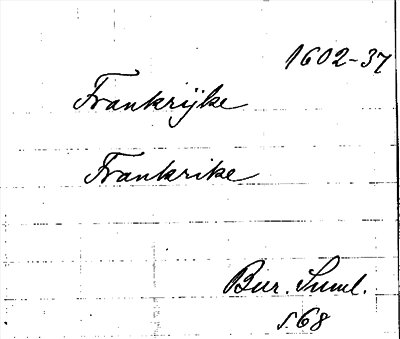 1602-37
Frankrijke
Frankrike
Bur. Suml.
s. 68